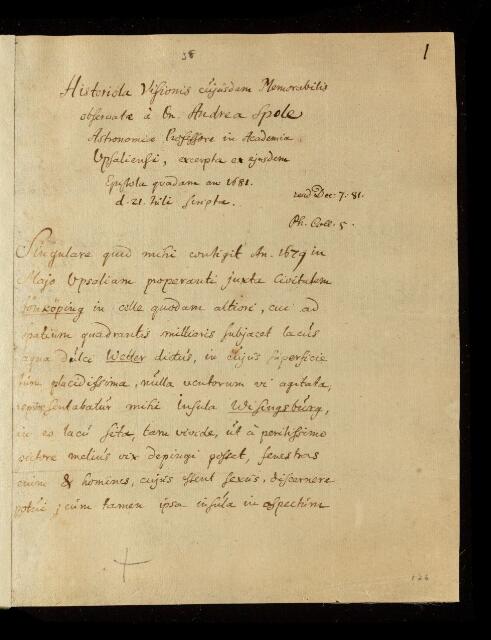 58
1
Historiola Visionis cujusdam Memorabilis
observatæ à Dn. Andrea Spole
Astronomiæ Professore in Academia
Upsaliensi, excerpta ex ejusdem
Epistola quadam an 1681.
d. 21. Julii scripta.
read Dec: 7. 81.
Ph. Coll. 5.
Singulare quid mihi contigit An. 1679 in
Majo Upsaliam properanti juxta Civitatem
Jonköping in colle quodam altiori, cui ad
spatium quadrantis milliaris subjacet lacus
aqua dulci Wetter dictus, in cujus superficie
tùm placidissima, nulla ventorum vi agitata,
repræsentabatur mihi Insula Wisingsburg,
in eo lacu sita, tam vivide, ut à peritissimo
pictore melius vix depingi posset, fenestras
enim & homines, cujus essent sexus, discernere
potui; cum tamen ipsa insula in aspectum
126